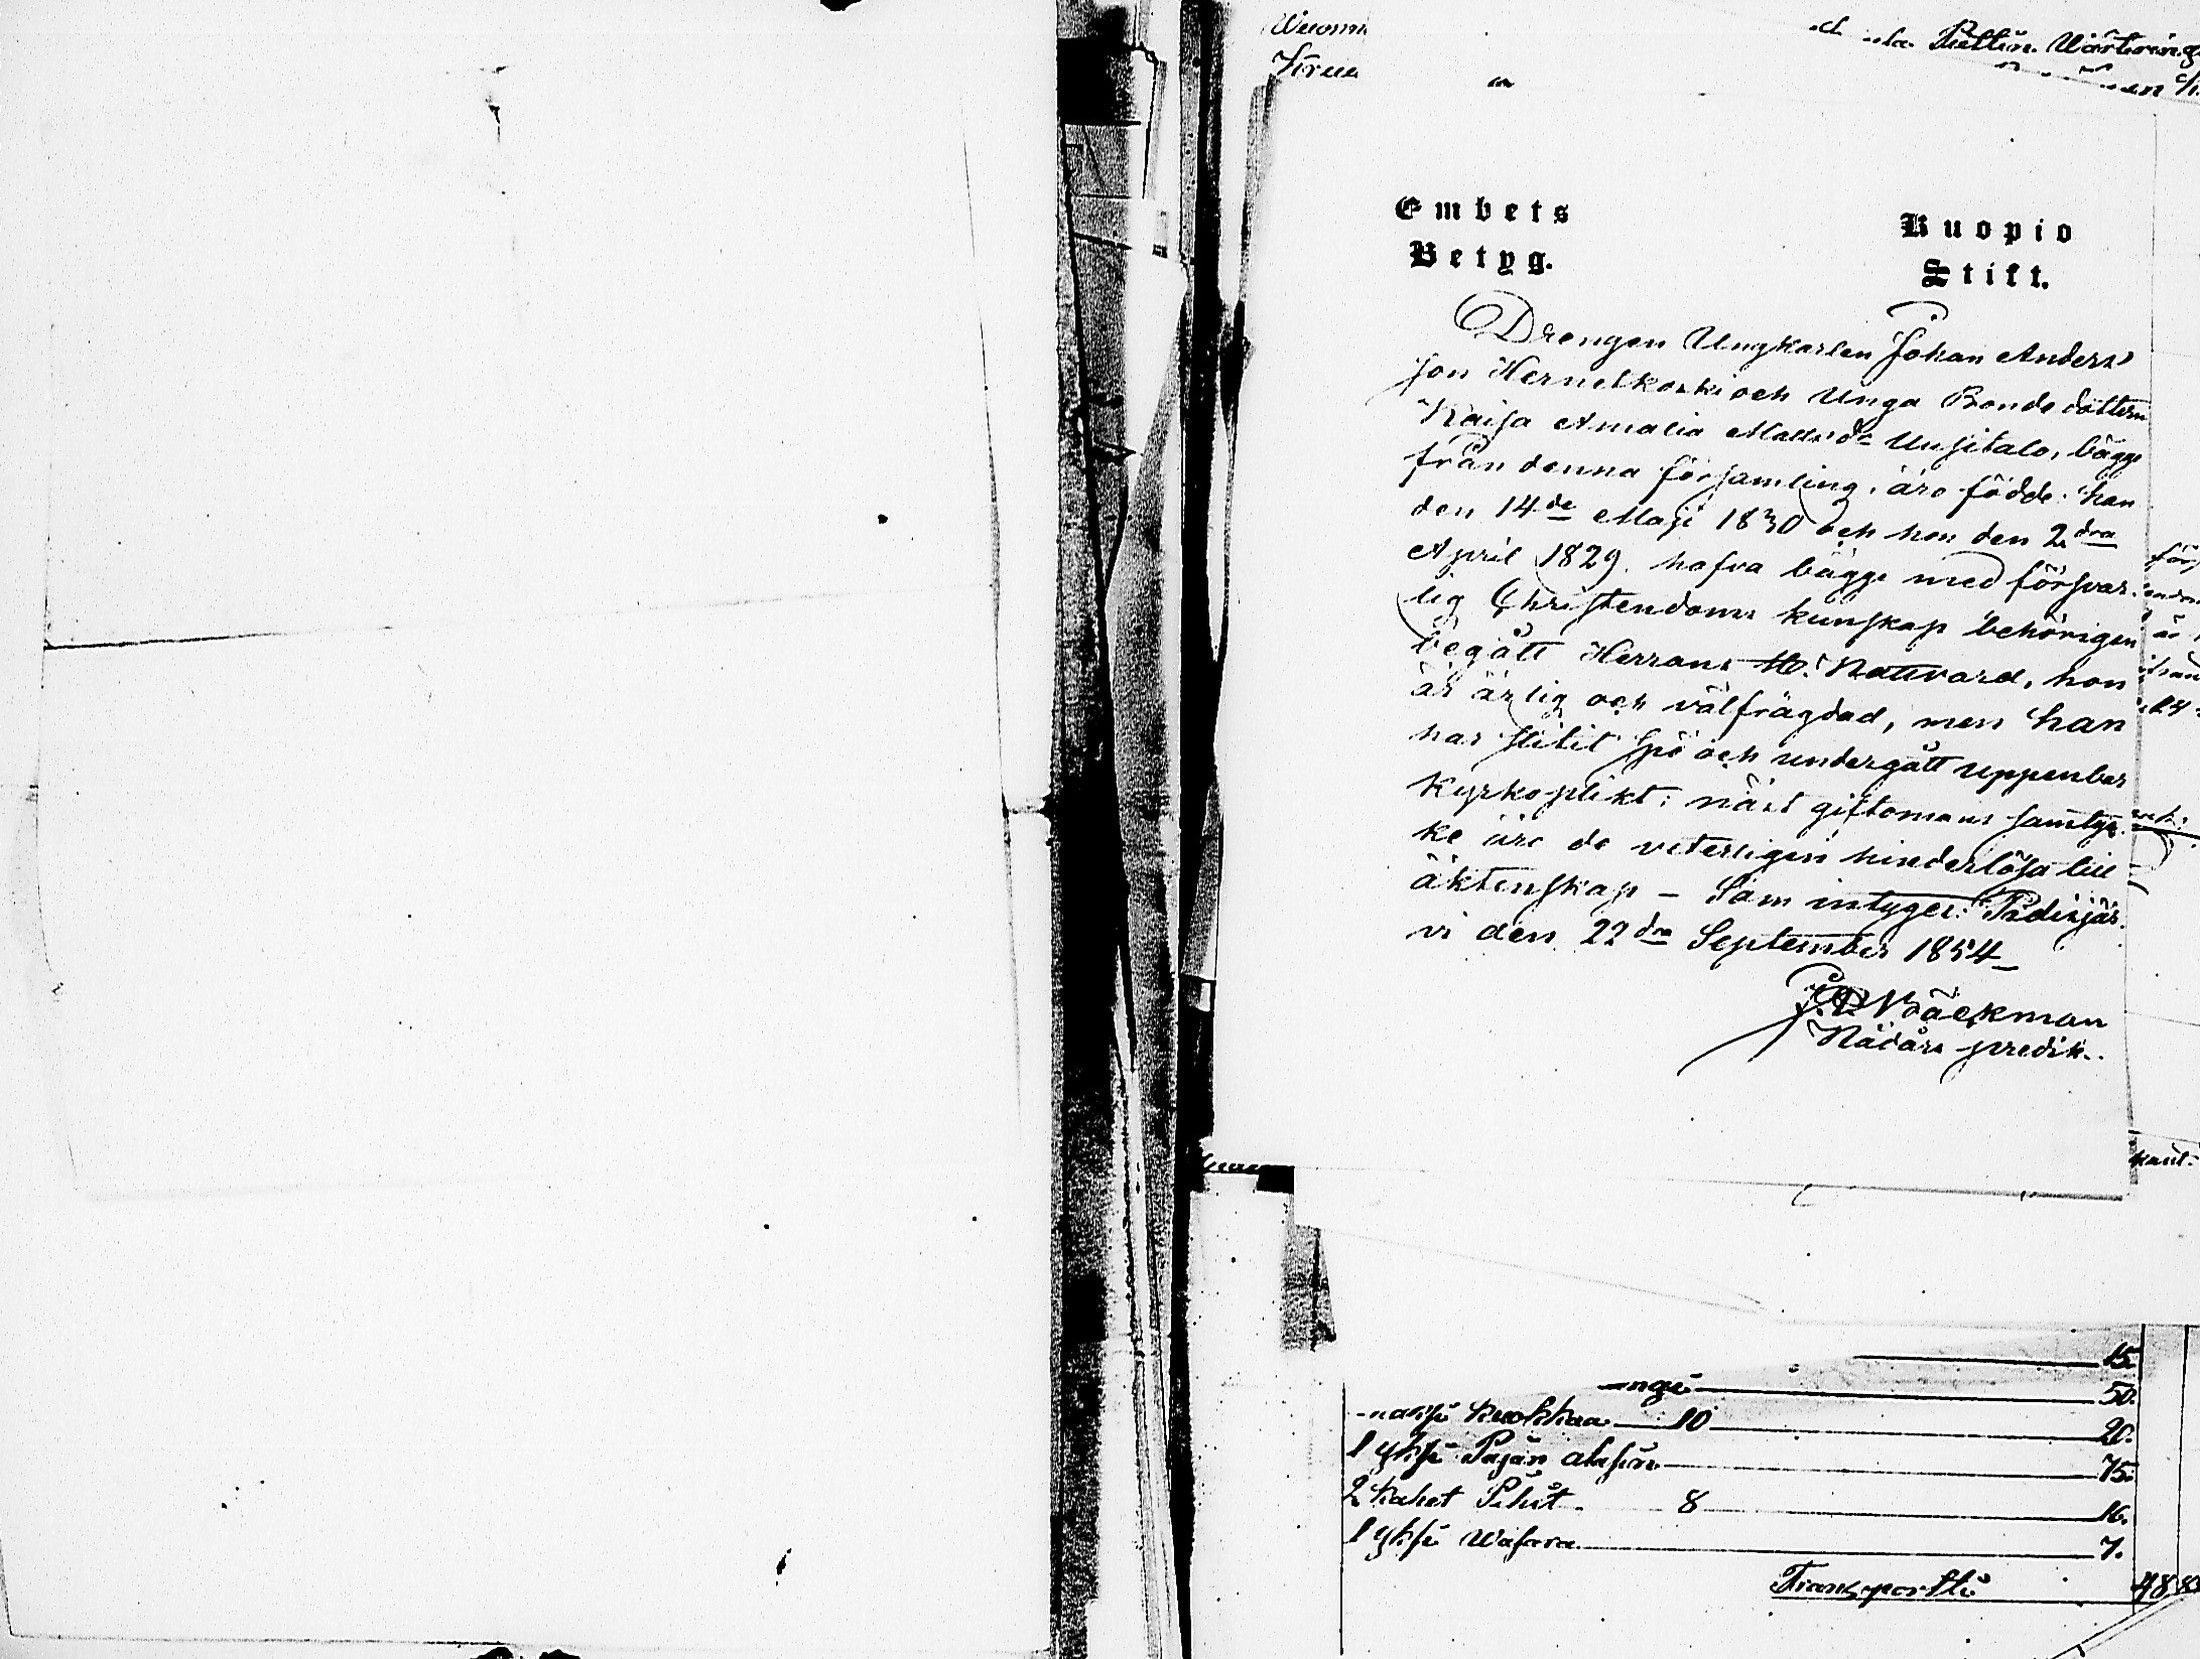 Embets
Betyg.
Kuopio
Stift.
Drengen Ungkarlen Johan Anders
son Hernelkoski och Unga Bonde dottern
Kaisa Amalia Matts dr Uusitalo, bägge
från denna församling, äro födde: han
den 14de Maji 1830 och hon den 2dra
April 1829. hafva bägge med försvar-
lig Christendoms kunskap behörigen
begått Herrans H. Nattvard, hon
är ärlig och välfrägdad, men han
har slitit spö och undergått uppenbar
Kyrkoplikt; näst giftomans samtyc-
ke äro de veterligen hinderlösa till
äktenskap – Som intyger. Pädisjär-
vi den 22dra September 1854
Bäckman
Nådårs predik.
15.
50.
kuokkaa 10 20.
1 yksi Pajan alasin 75.
2 kahet Pihit 8 16.
1 yksi Wasara 7.
Transportti